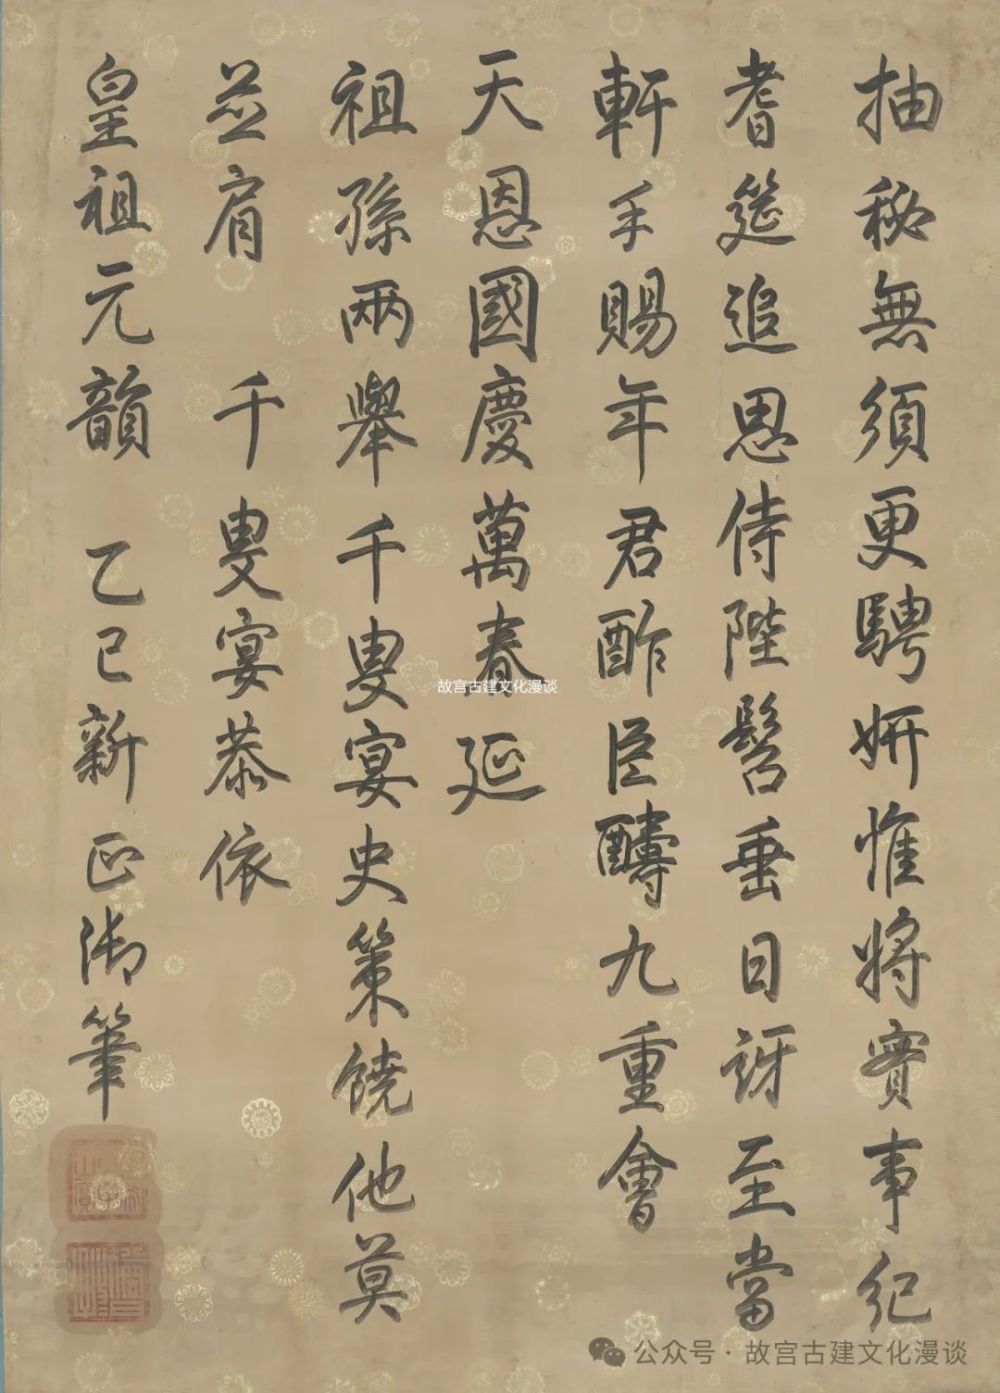 抽秘無須更騁妍惟將實事紀
耆筵追思侍陛髫垂日訝至當
軒手賜年君酢臣醻九重會
天恩國慶萬春延
祖孫兩舉千叟宴史策饒他莫
並肩 千叟宴恭依
皇祖元韻 乙巳新正御筆
故宫古建文化漫谈
公众号·故宫古建文化漫谈